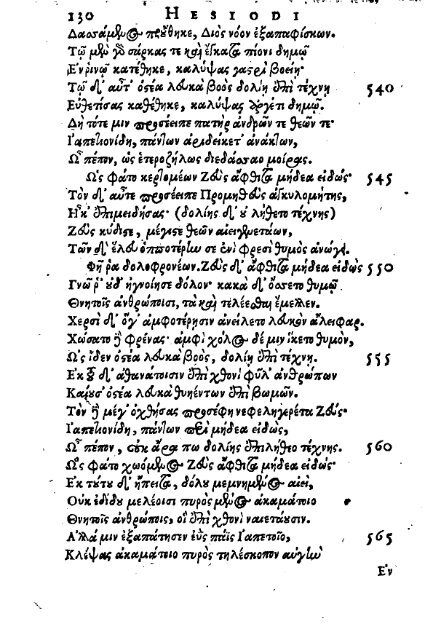 130 HESIODI
Δασσάμενος προύθηκε, Διὸς νόον ἐξαπαφίσκων.
Τῷ μὲν γὸ σάρκας τε καὶ ἔγκατα πίονι δημῷ
Ἐν ῥινῷ κατέθηκε, καλύψας γαστρὶ βοείῃ·
Τῷ δ' αὖτ' ὀστέα λευκὰ βοὸς δολίῃ ἐπὶ τέχνῃ 540
Εὐθετίσας κατέθηκε, καλύψας ἀργέτι δημῷ.
Δὴ τότε μιν προσέειπε πατὴρ ἀνδρῶν τε θεῶν τε·
Ἰαπετιονίδη, πάντων ἀριδείκετ' ἀνάκτων,
Ὦ πέπον, ὡς ἑτεροζήλως διεδάσσαο μοίρας.
Ὣς φάτο κερτομέων Ζεὺς ἄφθιτα μήδεα εἰδώς· 545
Τὸν δ' αὖτε προσέειπε Προμηθεὺς ἀγκυλομήτης,
Ἦκ' ἐπιμειδήσας· (δολίης δ' οὐ λήθετο τέχνης)
Ζεῦς κύδιστε, μέγιστε θεῶν αἰειγενετάων,
Τῶν δ' ἕλευ ὁπποτέρην σε ἐνὶ φρεσὶ θυμὸς ἀνώγει.
Φῆ ῥα δολοφρονέων. Ζεὺς δ' ἄφθιτα μήδεα εἰδὼς 550
Γνῶ ῥ' οὐδ' ἠγνοίησε δόλον· κακὰ δ' ὄσσετο θυμῷ
Θνητοῖς ἀνθρώποισι, τὰ καὶ τελέεσθαι ἔμελλεν.
Χερσὶ δ' ὅγ' ἀμφοτέρῃσιν ἀνείλετο λευκὸν ἄλειφαρ.
Χώσατο δὲ φρένας· ἀμφὶ χόλος δέ μιν ἵκετο θυμὸν,
Ὡς ἴδεν ὀστέα λευκὰ βοὸς, δολίῃ ἐπὶ τέχνῃ. 555
Ἐκ τοῦ δ' ἀθανάτοισιν ἐπὶ χθονὶ φῦλ' ἀνθρώπων
Καίουσ' ὀστέα λευκὰ θυηέντων ἐπὶ βωμῶν.
Τὸν δὲ μέγ' ὀχθήσας προσέφη νεφεληγερέτα Ζεύς·
Ἰαπετιονίδη, πάντων πέρι μήδεα εἰδώς,
Ὦ πέπον, οὐκ ἄρα πω δολίης ἐπιλήθεο τέχνης. 560
Ὣς φάτο χωόμενος Ζεὺς ἄφθιτα μήδεα εἰδώς·
Ἐκ τούτου δ' ἤπειτα, δόλου μεμνημένος αἰεὶ,
Οὐκ ἐδίδου μελέοισι πυρὸς μένος ἀκαμάτοιο
Θνητοῖς ἀνθρώποις, οἳ ἐπὶ χθονὶ ναιετάουσιν.
Ἀλλά μιν ἐξαπάτησεν ἐῢς πάϊς Ἰαπετοῖο, 565
Κλέψας ἀκαμάτοιο πυρὸς τηλέσκοπον αὐγὴν
Ἐν